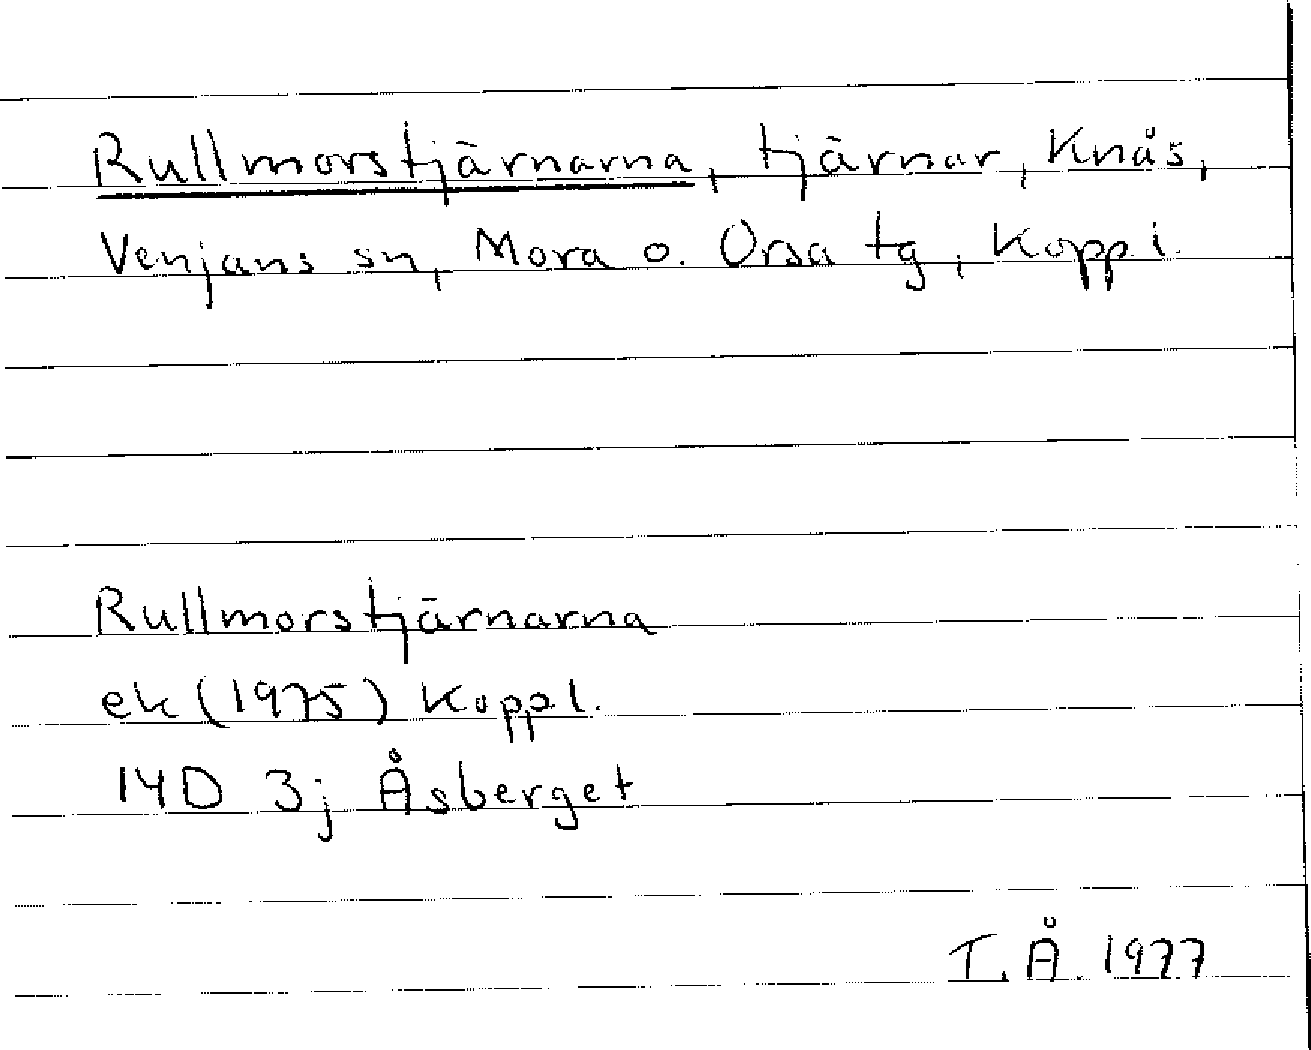 Rullmorstjärnarna, tjärnar, Knås,
Venjans sn, Mora o. Orsa tg, Kopp.l.
Rullmorstjärnarna
ek (1975) Koppl.
14D 3j Åsberget
I.Å. 1977